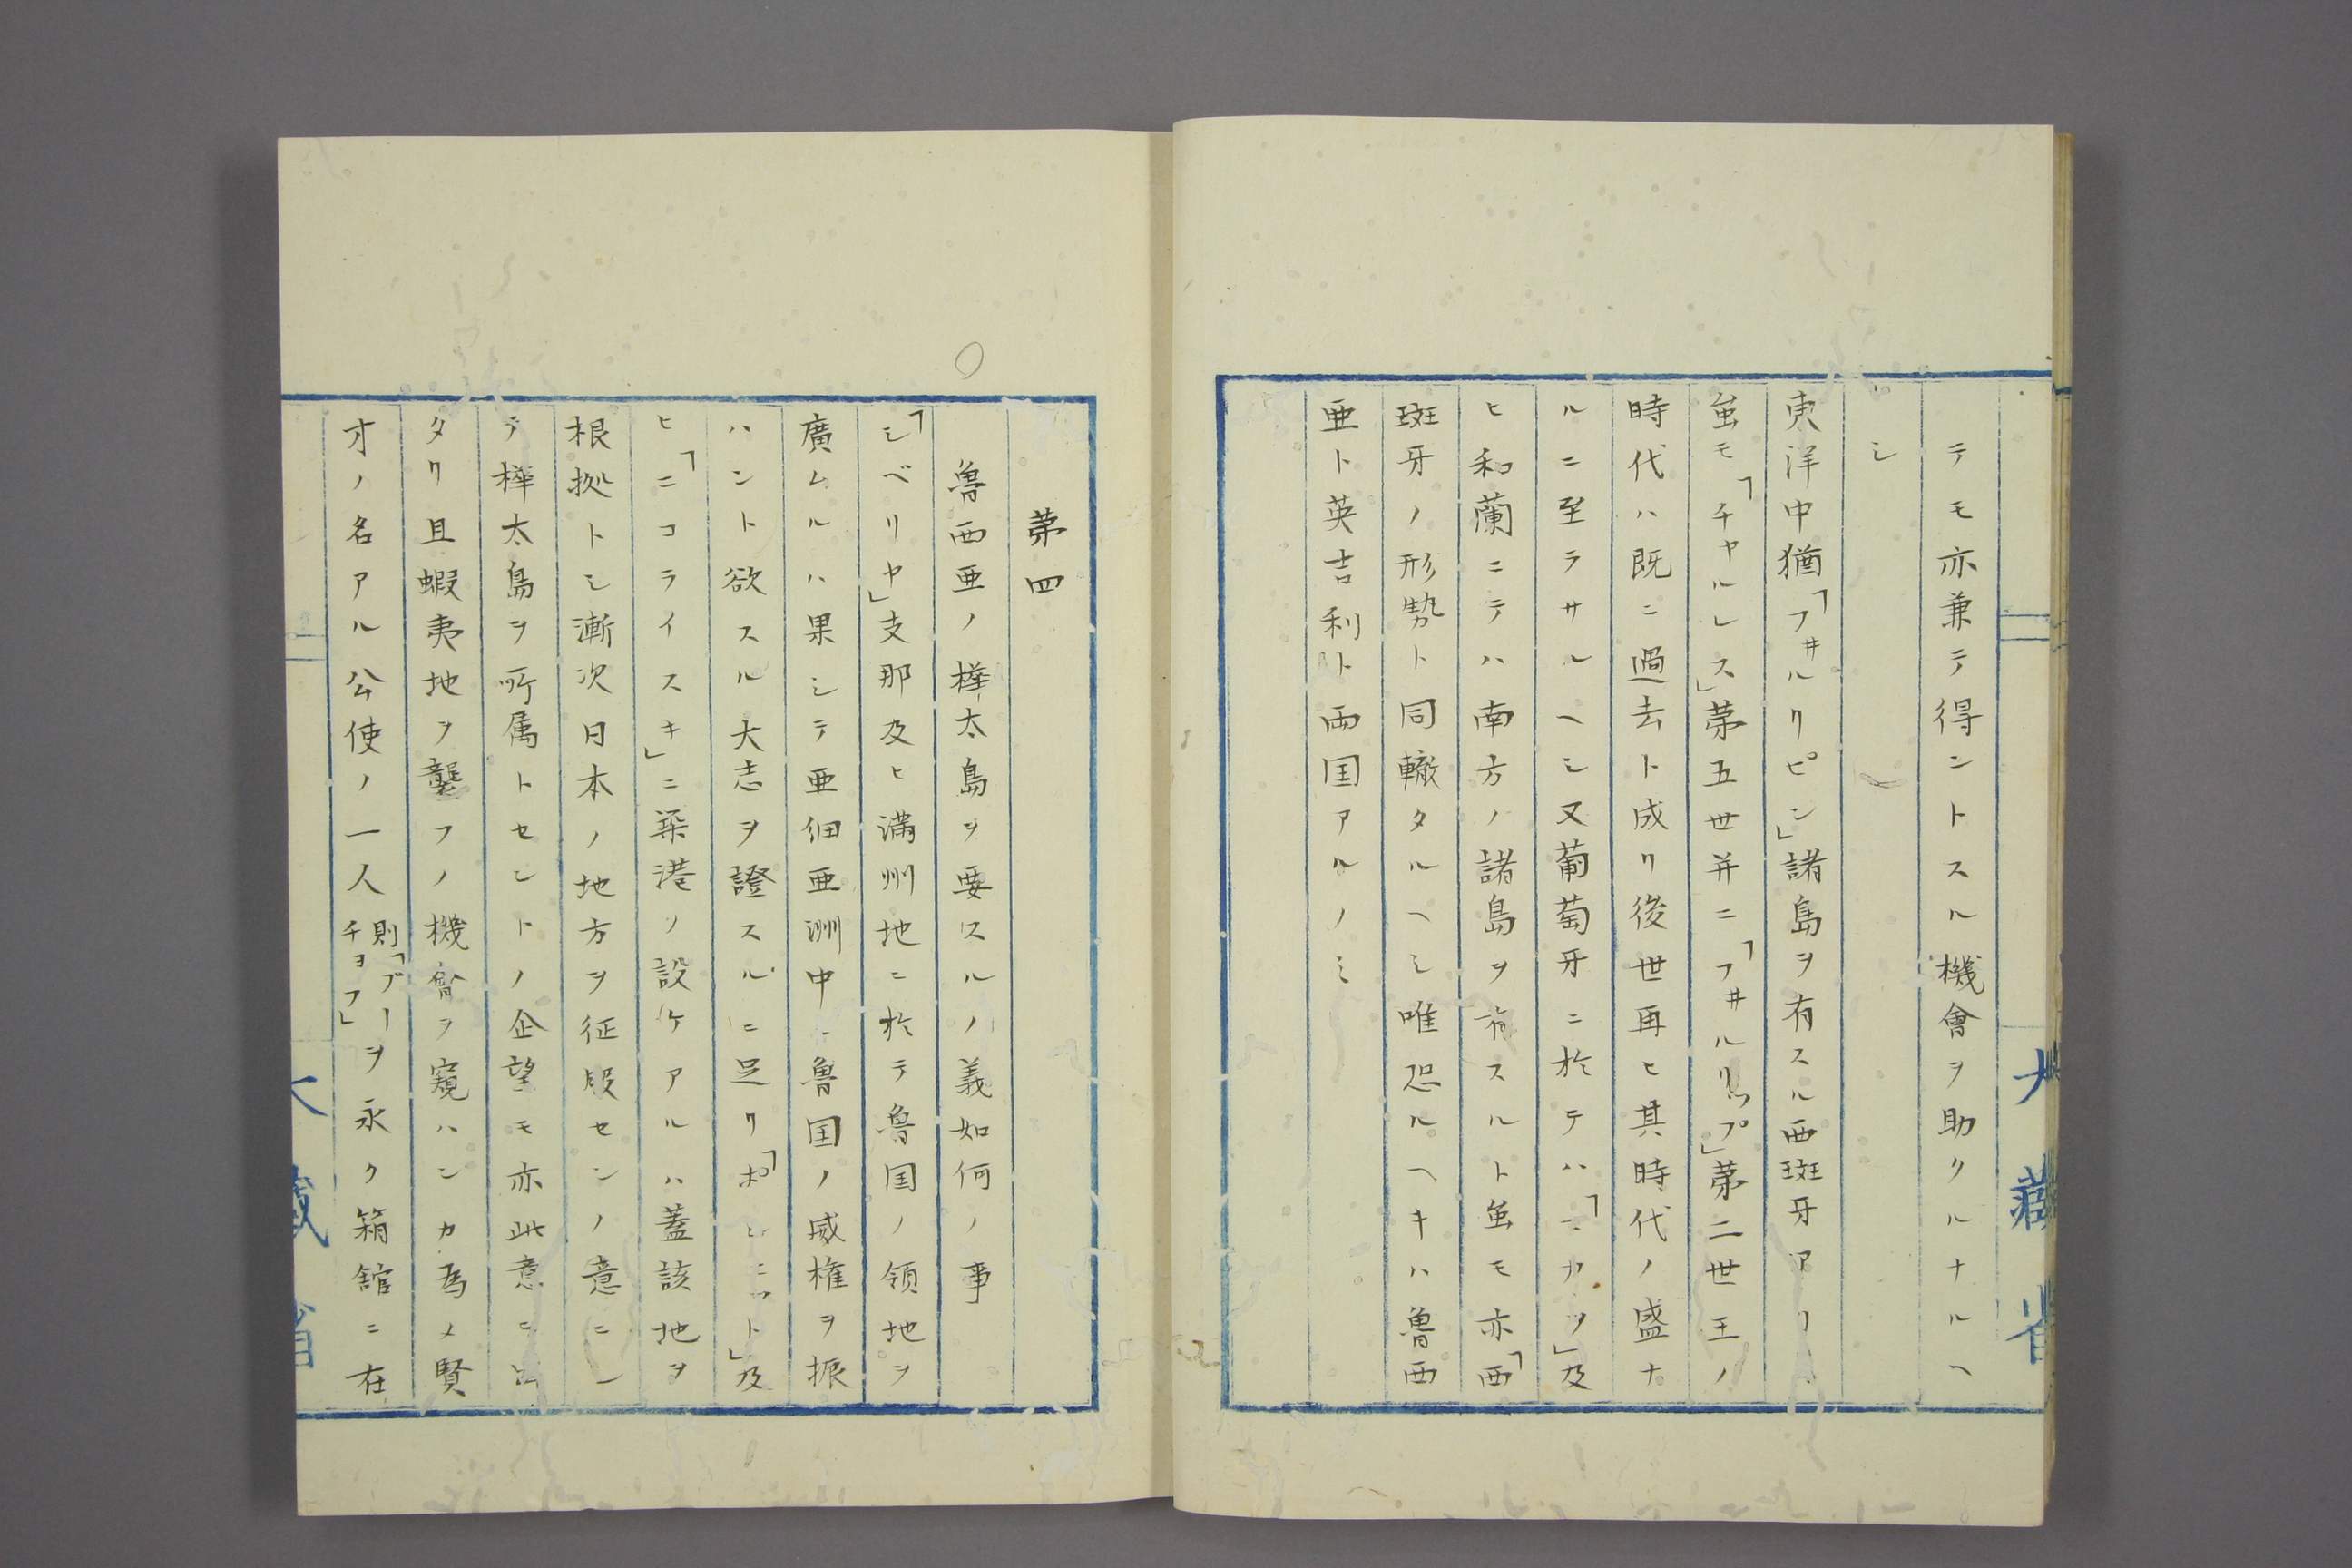 テモ亦兼テ得ントスル機會ヲ助クルナルヘ
シ
東洋中猶「フヰルリピン」諸島ヲ有スル西班牙アリ
虽モ「チャルレス」苐五世并ニ「フヰルリップ」苐二世王ノ
時代ハ既ニ過去ト成リ後世再ヒ其時代ノ盛ナ
ルニ至ラサルヘシ又葡萄牙ニ於テハ「マカヲ」及
ヒ和蘭ニテハ南方ノ諸島ヲ有スルト虽モ亦「西
斑牙ノ形勢ト同轍タルヘシ唯恐ルヘキハ魯西
亜ト英吉利ト両国アルノミ
大藏省
苐四
魯西亜ノ樺太島ヲ要スルノ義如何ノ事
「シベリヤ」支那及ヒ満州地ニ於テ魯国ノ領地ヲ
廣ムルハ果シテ亜細亜洲中ニ魯国ノ威権ヲ振
ハント欲スル大志ヲ證スルニ足リ「ポシェット」及
ヒ「ニコライスキ」ニ築港ノ設ケアルハ蓋該地ヲ
根拠トシ漸次日本ノ地方ヲ征服センノ意ニシ
テ樺太島ヲ所属トセントノ企望モ亦此意ニ出
タリ且蝦夷地ヲ襲フノ機會ヲ窺ハンカ為メ賢
才ノ名アル公使ノ一人則「ブーチヨフ」ヲ永ク箱館ニ在
大藏省